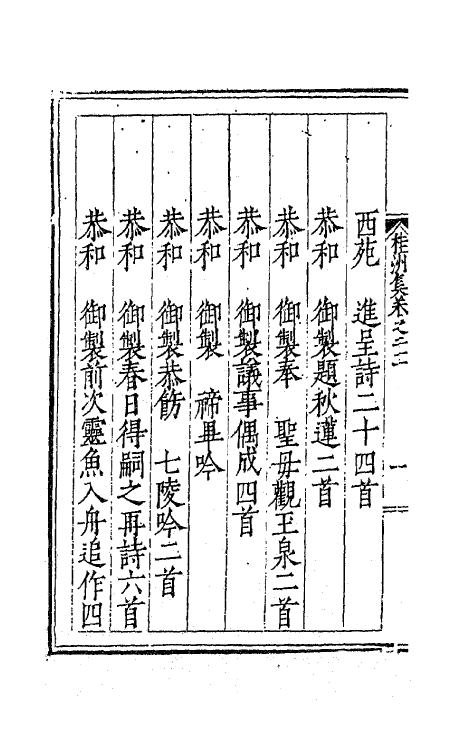 桂洲集卷之二 一
西苑 進呈詩二十四首
恭和 御製題秋蓮二首
恭和 御製奉 聖母觀玉泉二首
恭和 御製議事偶成四首
恭和 御製 禘畢吟
恭和 御製恭飭 七陵吟二首
恭和 御製春日得嗣之再詩六首
恭和 御製前次靈魚入舟追作四